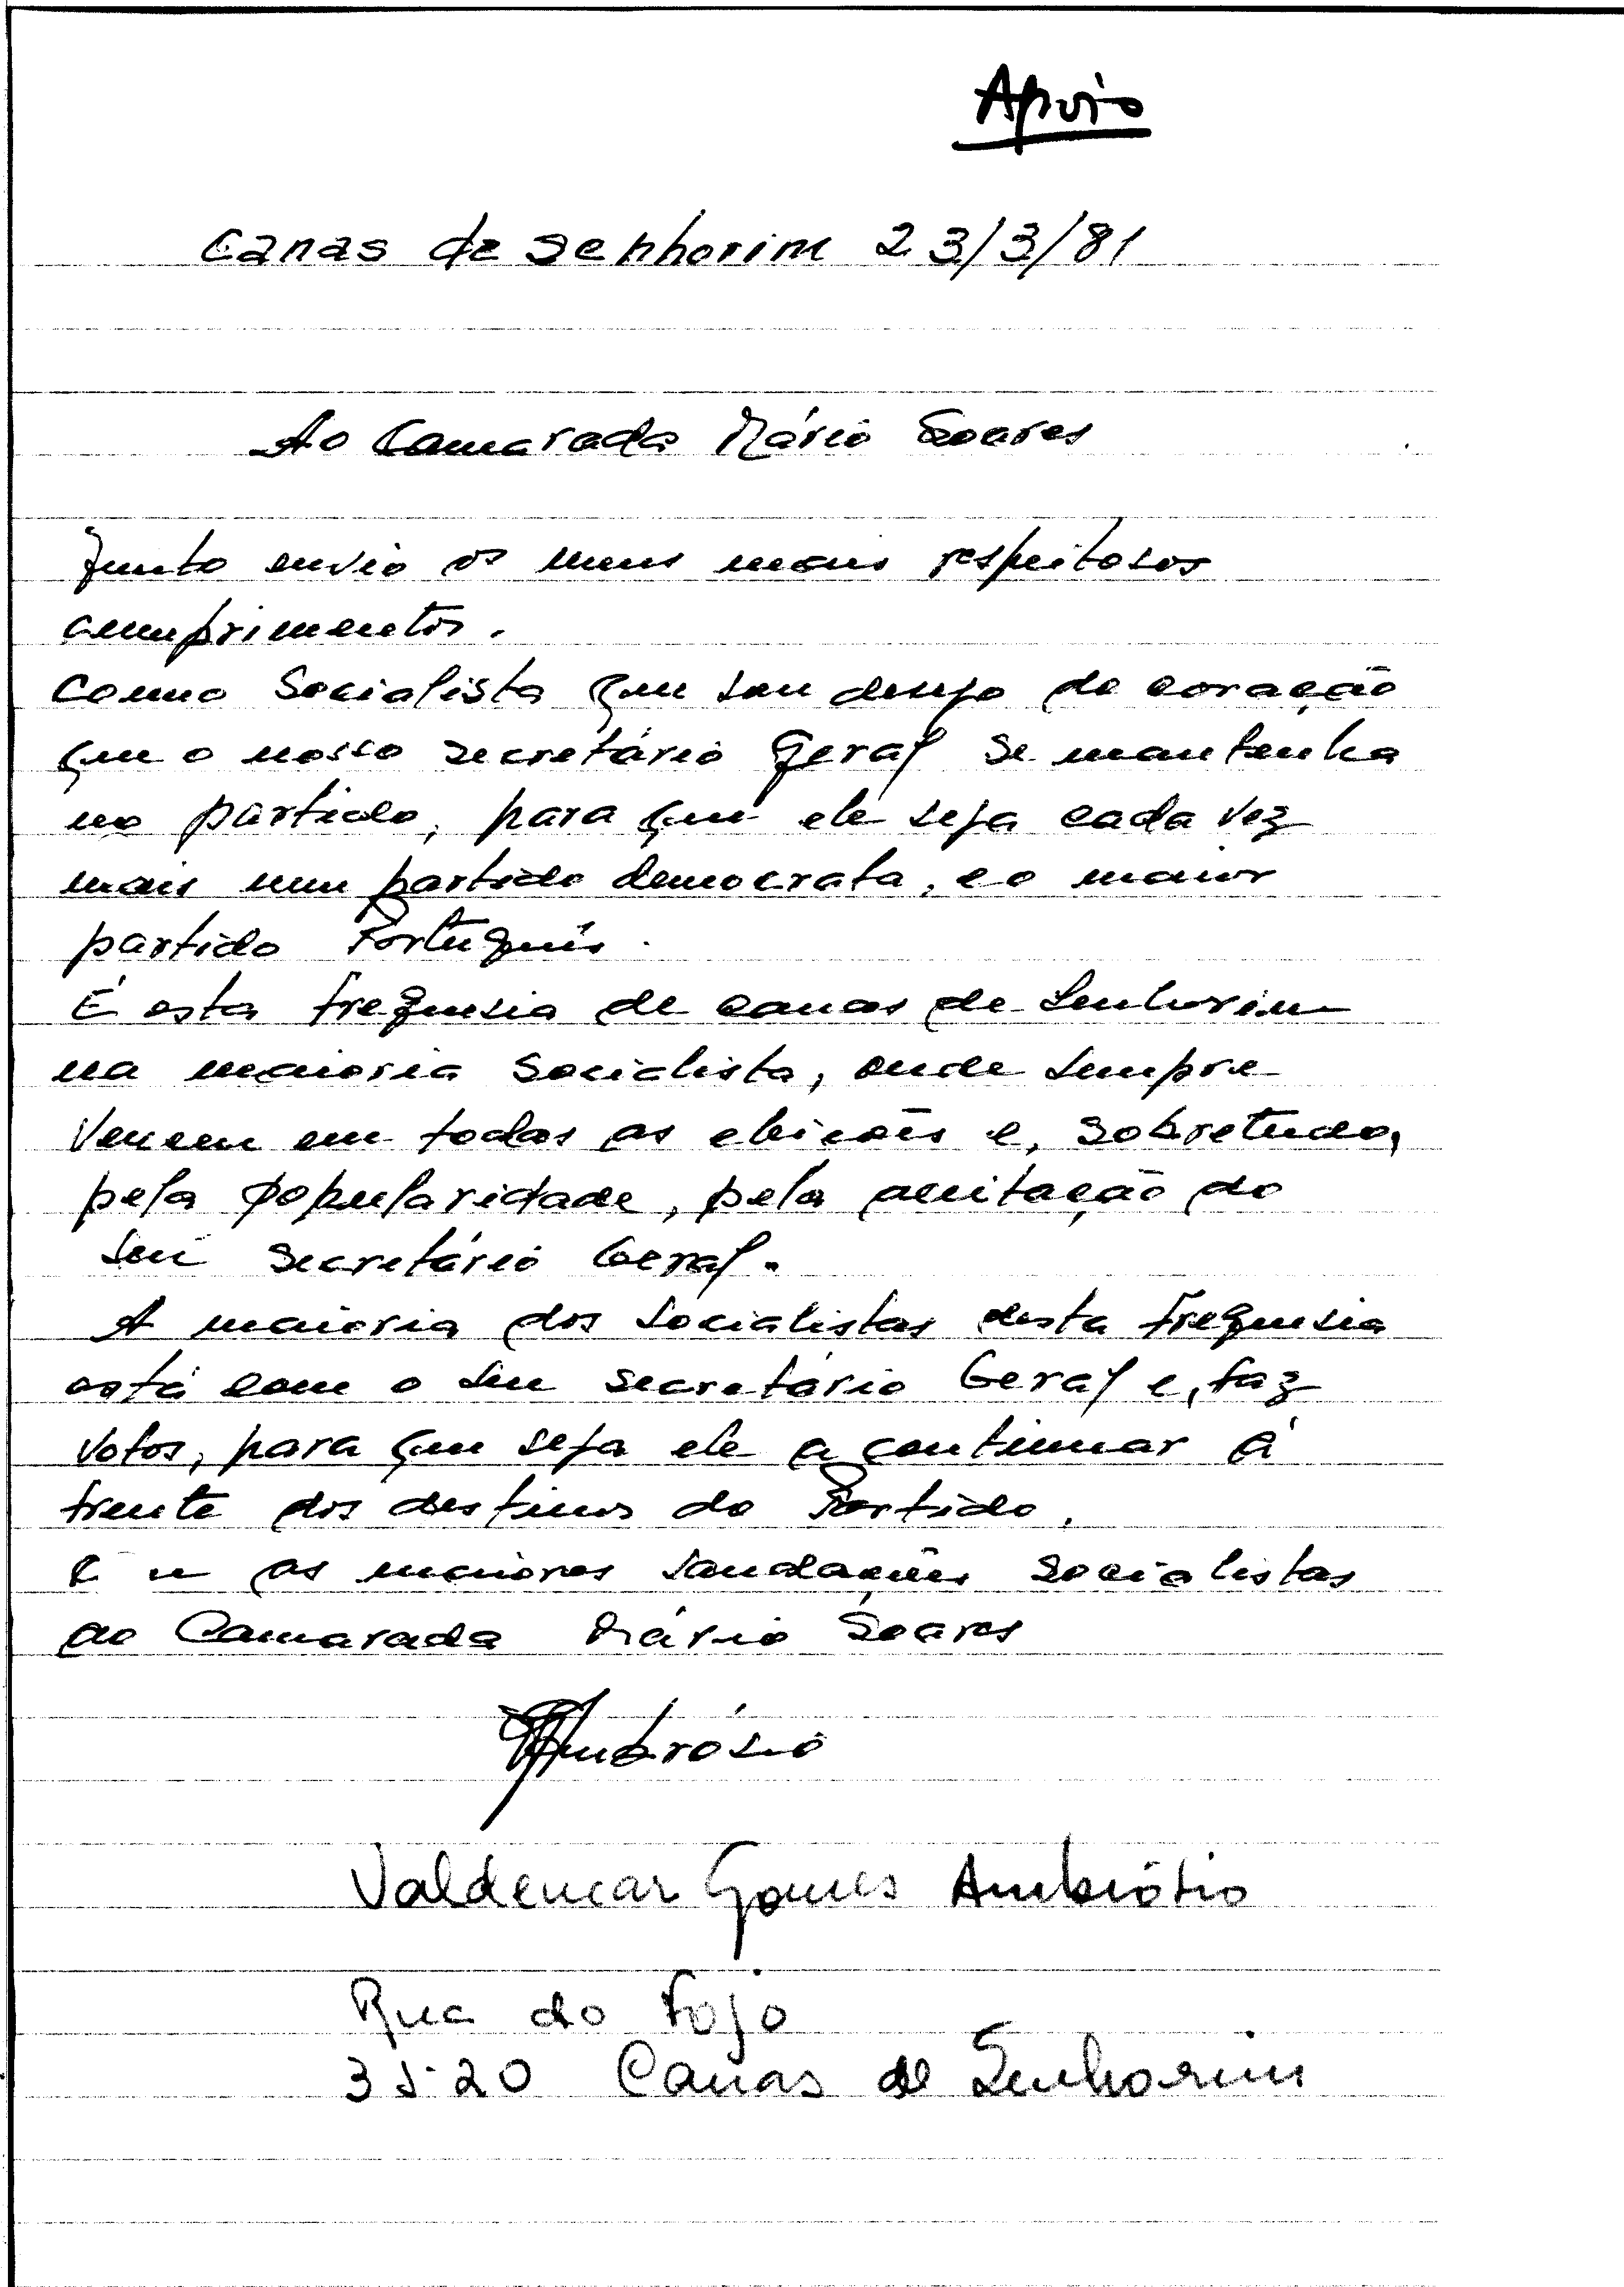 Apoio
Canas de Senhorim 23/3/81
Ao Camarada Mário Soares
Junto envio os meus mais respeitosos
cumprimentos.
Como Socialista que sou desejo do coração
que o nosso secretário Geral se mantenha
no partido, para que ele seja cada vez
mais um partido democrata, e o maior
partido Português.
É esta freguesia de Canas de Senhorim
na maioria Socialista, onde sempre
Vencem em todas as eleicões e, sobretudo,
pela popularidade, pela aceitação do
seu Secretário Geral.
A maioria dos Socialistas desta freguesia
está com o seu secretário Geral e, faz
votos, para que seja ele a continuar á
frente dos destinos do Partido.
as maiores saudações socialistas
ao Camarada Mário Soares
Ambrósio
Valdemar Gomes Ambrósio
Rua do Fojo
3520 Canas de Senhorim